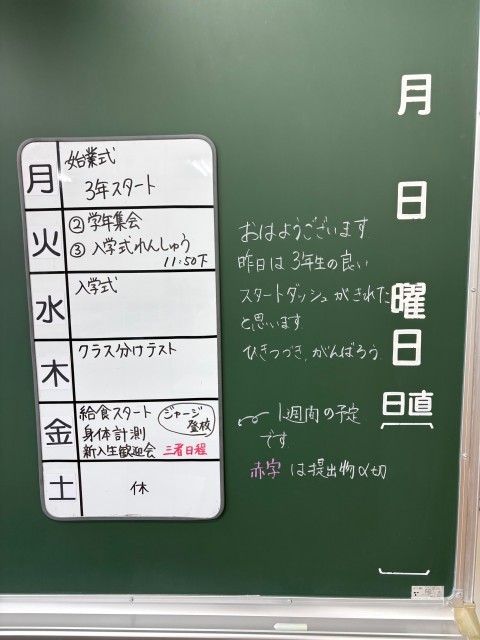 月
始業式
3年スタート
火
②学年集会
③入学式れんしゅう
11:50下
水
入学式
木
クラス分けテスト
金
給食スタート
身体計測
新入生歓迎会
ジャージ
登校
三者日程
土
休
おはようございます
昨日は3年生の良い
スタートダッシュがきれた
と思います
ひきつづき、がんばろう.
1週間の予定
です
赤字は提出物〆切
月
日
曜
日
日直